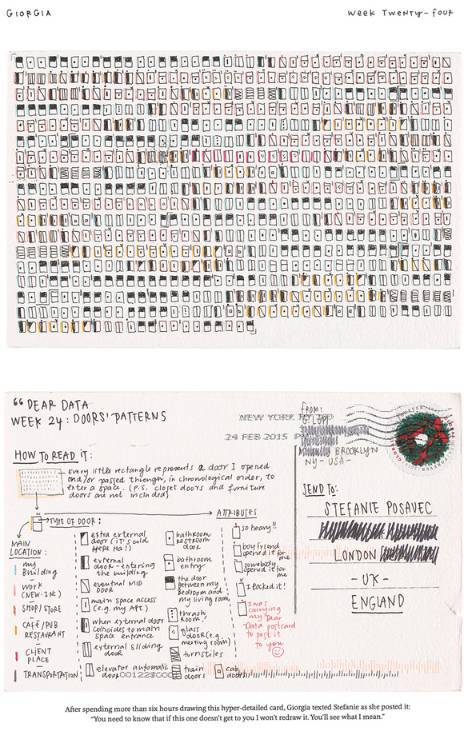 GIORGIA
WEEK TWENTY-FOUR
DEAR DATA
WEEK 24: DOORS' PATTERNS
HOW TO READ IT:
every little rectangle represents a door I opened
and/or passed through, in chronological order, to
enter a space. (P.S. closet doors and furniture
doors are not included)
TYPE OF DOOR:
ATTRIBUTES
MAIN
LOCATION:
my
building
work
(NEW-INC)
SHOP/STORE
CAFÉ/PUB
RESTAURANT
CLIENT
PLACE
TRANSPORTATION
extra external
door (it's cold
here NA!)
external
door - entering
the building
external
door
main space access
(e.g. my APT)
when external door
coincides to main
space entrance
external sliding
door
elevator automatic
door
bathroom
restroom
door
bathroom
entry
the door
between my
bedroom and
my living room
thrash
room
glass
door (e.g.
meeting room)
turnstiles
train
doors
cab
doors
so heavy!!
boyfriend
opened it for
me
somebody
opened it for
me
I locked it!
I was
carrying
my Dear
Data postcard
to post it
to you
FROM:
G. LUPI
BROOKLYN
NY - USA -
NEW YORK NY 100
24 FEB 2015
SEND TO:
STEFANIE POSAVEC
LONDON
- UK -
ENGLAND
After spending more than six hours drawing this hyper-detailed card, Giorgia texted Stefanie as she posted it:
“You need to know that if this one doesn't get to you I won't redraw it. You'll see what I mean.”